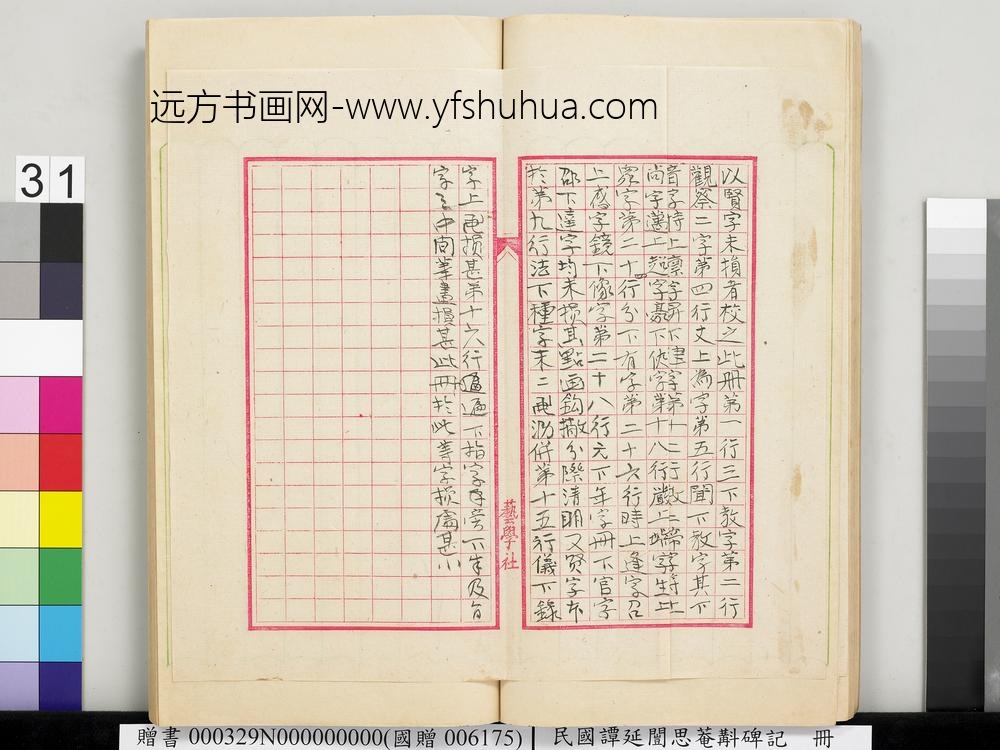 远方书画网-www.yfshuhua.com
31
以賢字未損者校之此冊第一行三下教字第二行
觀察二字第四行丈上為字第五行聞下教字其下
音字時上稟字昇下
尚字邁上超字
字第二十行分下有字第二十六行時上逢字召
上應字鏡下像字第二十八行元下年字冊下官字
邵下達字均未損其點画鈎撇分際清明又賢字本
於第九行法下種字末二画泐併第十五行儀下錄
字上画損甚第十六行遍下指字旁下半及旨
字之中間筆畫損甚此冊於此等字損處甚小
藝學社
贈書 000329N000000000(國贈 006175)
民國譚延闓思菴斠碑記 冊